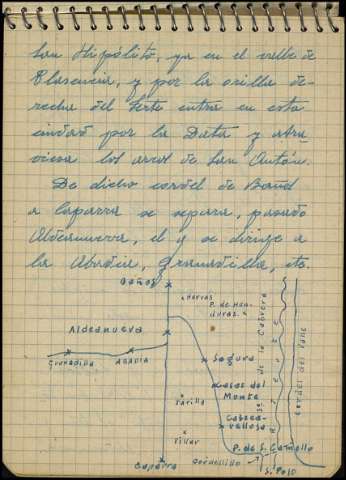 San Hipólito, ya en el valle de
Plasencia, y por la orilla de-
recha del Jerte entra en esta
ciudad por la Data y atra-
viesa los arcos de San Antón.
De dicho cordel de Baños
a Caparra se separa, pasado
Aldeanueva, el q. se dirige a
la Abadía, Granadilla, etc.
Baños
Hervas
P. de Hon-
duras
Aldeanueva
Granadilla
Abadia
Segura
Casas del
Monte
Jarilla
Cabeza-
vellosa
Villar
P. de S. Camello
Caparra
S. Polo
Sa de la Cabrera
R. Jerte
Cordel del Valle